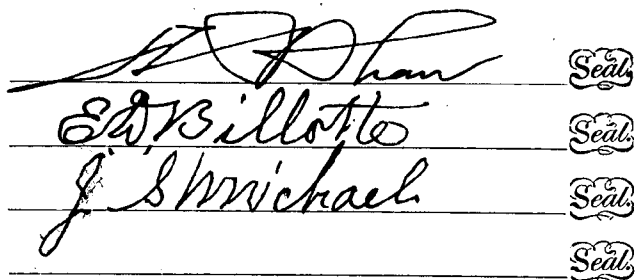 Shaw Seal.
E D Billotte Seal.
J. S. Michael Seal.
Seal.